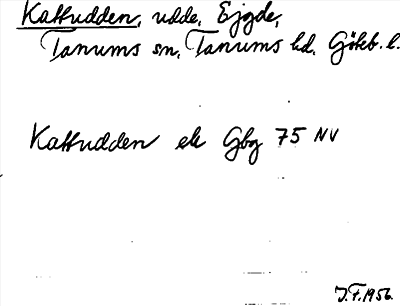 Kattudden, udde, Ejgde,
Tanums sn, Tanums hd. Göteb. l.
Kattudden ek Gbg 75 NV
J.F. 1956.